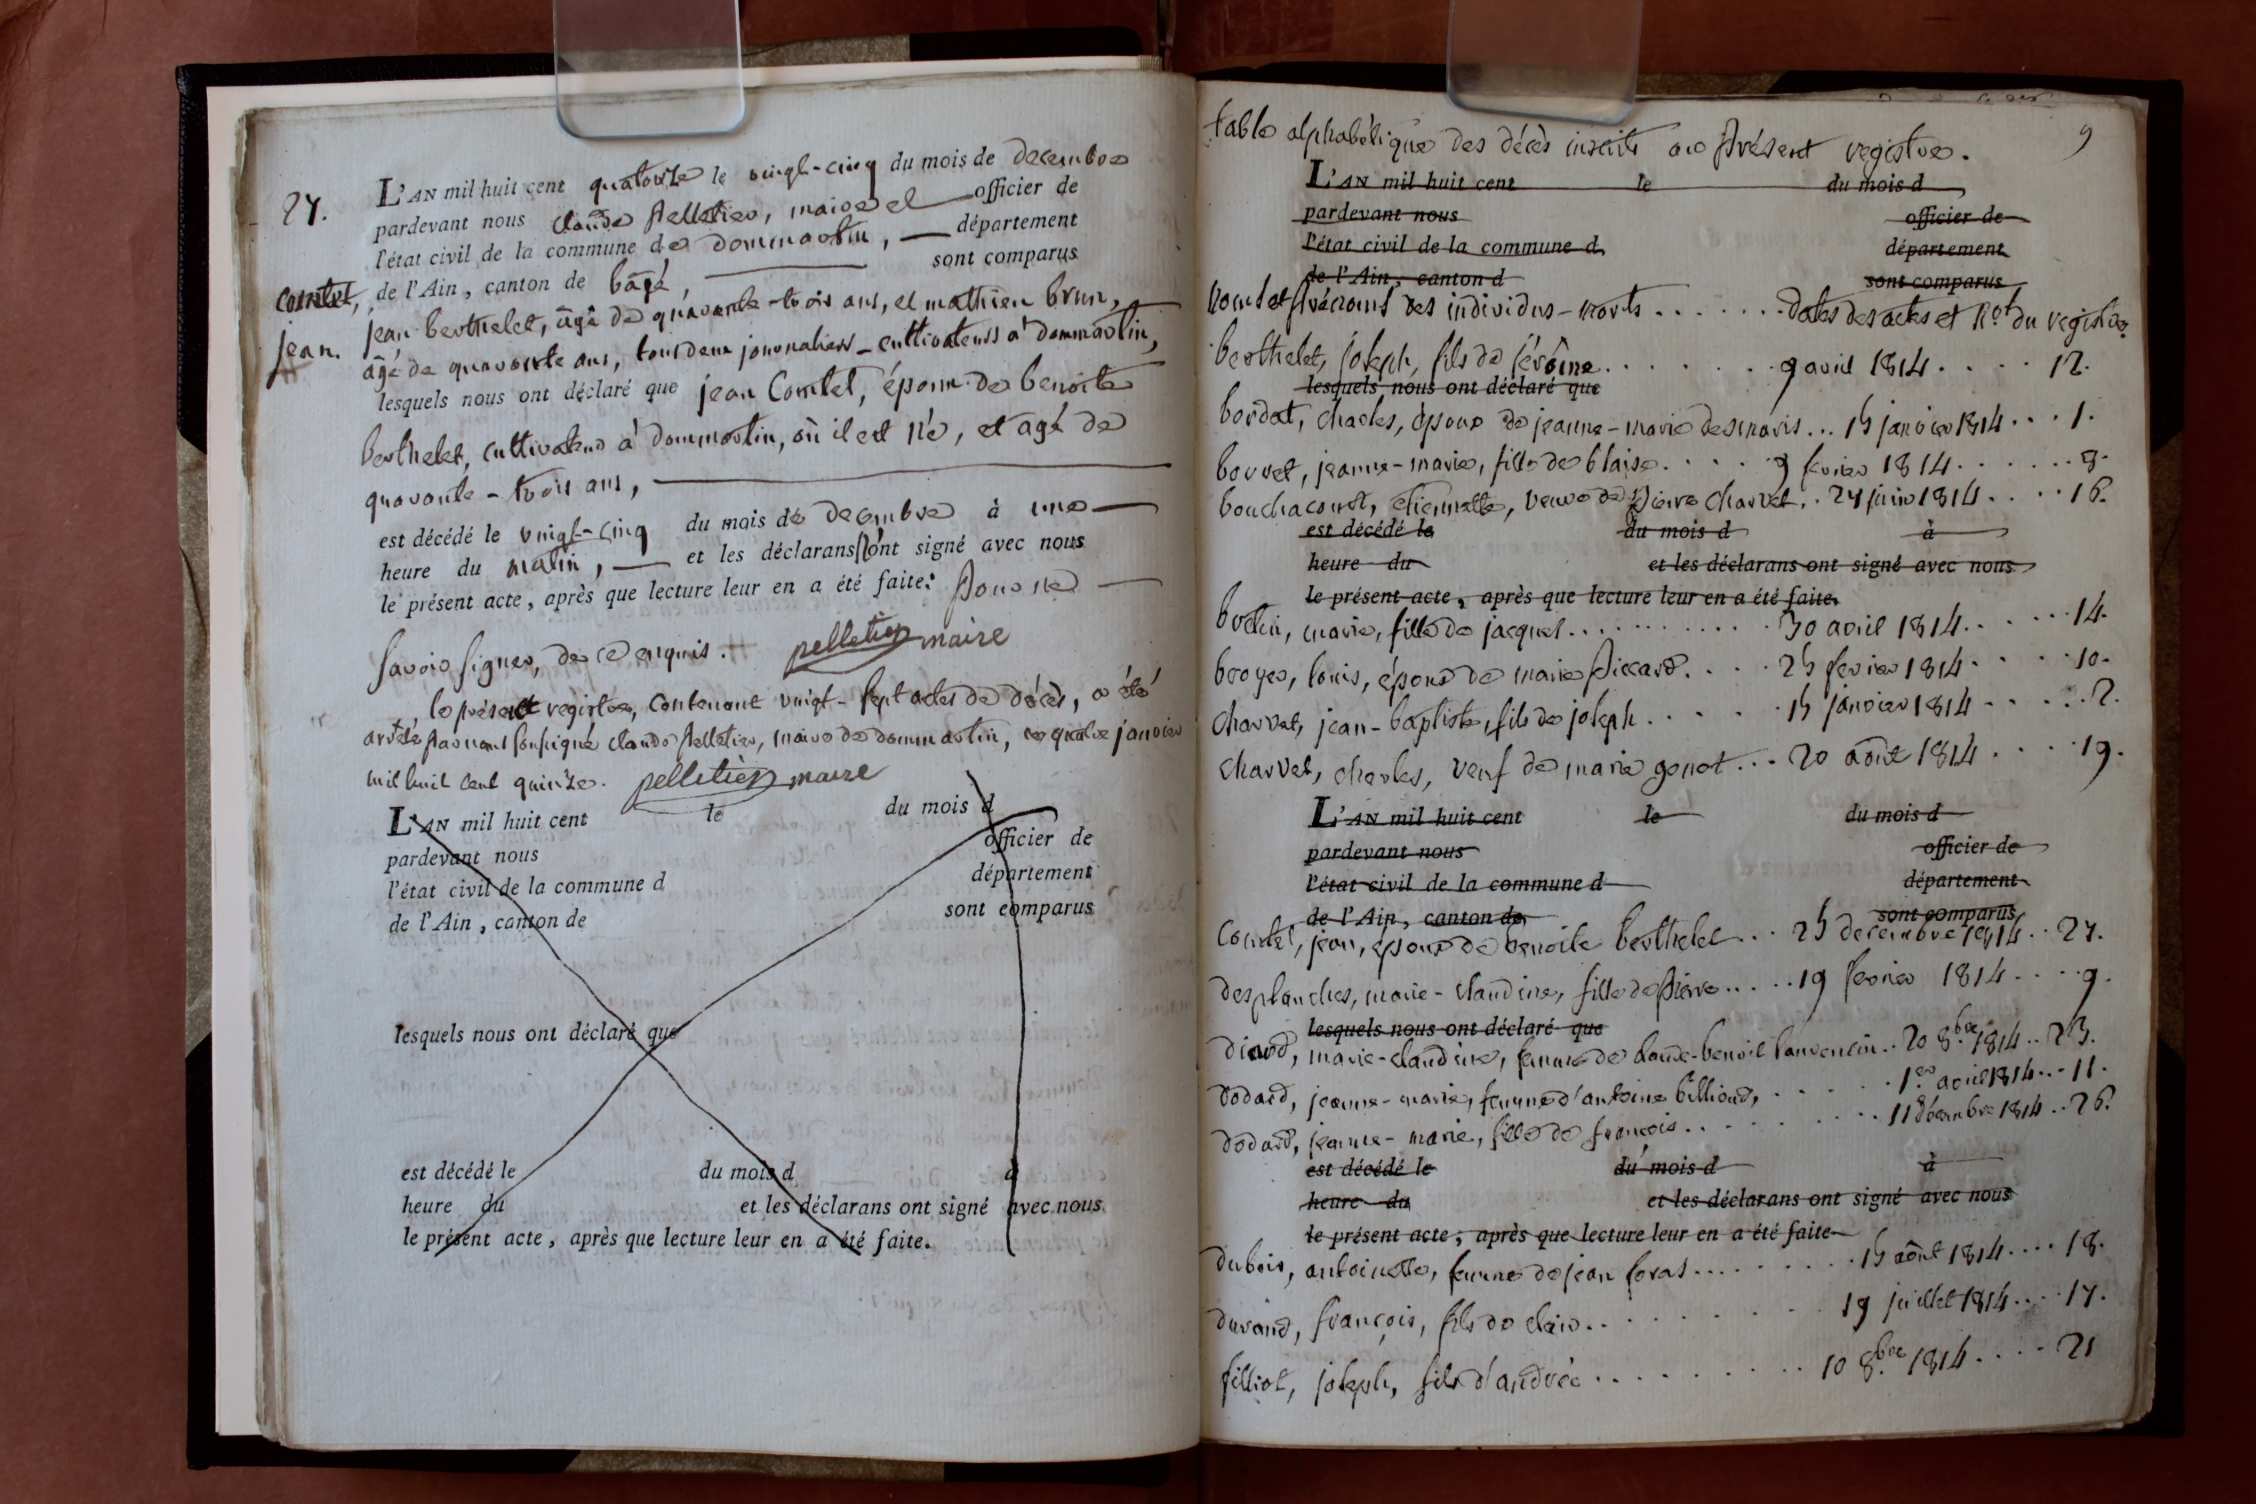 27.
L'AN mil huit cent quatorze le vingt-cinq du mois de decembre
pardevant nous claude pelletier, maire et officier de
l'état civil de la commune de dommartin, département
de l'Ain, canton de bâgé, sont comparus
Comtet,
jean.
jean berthelet, âgé de quarante-trois ans, et mathieu brun,
âgé de quarante ans, tous deux journaliers-cultivateurs à dommartin,
lesquels nous ont déclaré que jean Comtet, époux de benoite
berthelet, cultivateur à dommartin, où il est né, et agé de
quarante-trois ans,
est décédé le vingt-cinq du mois de decembre à une
heure du matin, et les déclarans n'ont signé avec nous
le présent acte, après que lecture leur en a été faite: pour ne
savoir signer, de ce enquis. pelletier maire
le présent registre, contenant vingt-sept actes de décès, a été
arrêté par nous soussigné claude pelletier, maire de dommartin, ce quatre janvier
mil huit cent quinze. pelletier maire
L'AN mil huit cent le du mois d
pardevant nous officier de
l'état civil de la commune d département
de l'Ain, canton de sont comparus
lesquels nous ont déclaré que
est décédé le du mois d à
heure du et les déclarans ont signé avec nous
le présent acte, après que lecture leur en a été faite.
9
table alphabétique des décès inscrits au présent registre.
L'AN mil huit cent le du mois d
pardevant nous officier de
l'état civil de la commune d département
de l'Ain, canton d sont comparus
noms et prénoms des individus-morts . . . . . . . dates des actes et nos du registre
berthelet, joseph, fils de jérôme . . . . . . . 9 avril 1814 . . . . 12.
lesquels nous ont déclaré que
bordat, charles, époux de jeanne-marie desmaris . . . 15 janvier 1814 . . . 1.
borret, jeanne-marie, fille de blaise . . . . . 9 fevrier 1814 . . . . . . 8.
bouchacourt, etiennette, veuve de pierre charvet . . 24 juin 1814 . . . . 16.
est décédé le du mois d à
heure du et les déclarans ont signé avec nous
le présent acte, après que lecture leur en a été faite.
brelin, marie, fille de jacques . . . . . . . . . . . 30 avril 1814 . . . . . . 14.
broyer, louis, époux de marie piccard . . . . 25 fevrier 1814 . . . . . 10.
charvet, jean-baptiste, fils de joseph . . . . . 15 janvier 1814 . . . . . 2.
charvet, charles, veuf de marie gonot . . . 20 août 1814 . . . . 19.
L'AN mil huit cent le du mois d
pardevant nous officier de
l'état civil de la commune d département
de l'Ain, canton de sont comparus
Comtet, jean, époux de benoite berthelet . . . 25 decembre 1814 . . 27.
desplanches, marie-claudine, fille de pierre . . . . . 19 fevrier 1814 . . . . 9.
lesquels nous ont déclaré que
diard, marie-claudine, femme de claude-benoit . . 20 8.bre 1814 . . 23.
dodard, jeanne-marie, femme d'antoine billioud, . . . . . . . 1.er avril 1814 . . . 11.
dodard, jeanne-marie, fille de françois . . . . . . . . . 11 décembre 1814 . . 26.
est décédé le du mois d à
heure du et les déclarans ont signé avec nous
le présent acte, après que lecture leur en a été faite
dubois, antoinette, femme de jean foras . . . . . . . . . 15 août 1814 . . . . 18.
durand, françois, fils de clair . . . . . . . . . 19 juillet 1814 . . . . 17.
filliot, joseph, fils d'andré . . . . . . . . . 10 8.bre 1814 . . . . 21